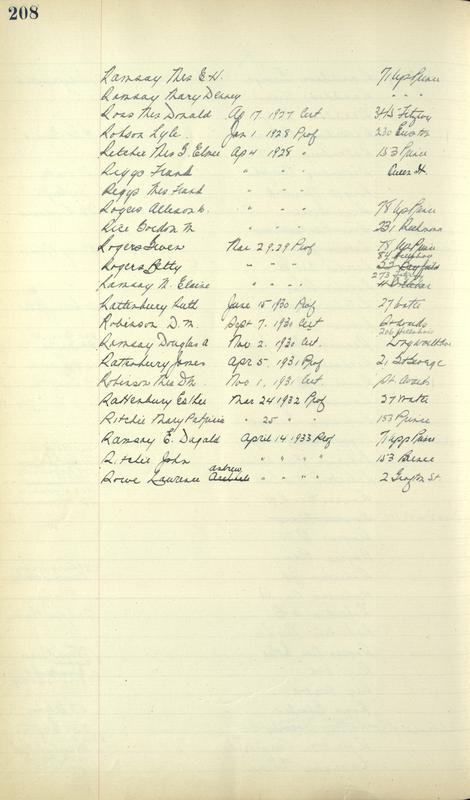 208
Ramsay Mrs E. H. 71 Up Prince
Ramsay Mary Denney " " "
Ross Mrs Donald Ap 17. 1927 Cert. 345 Fitzroy
Robson Lyle. Jan 1. 1928 Prof 230 Euston
Ritchie Mrs G. Elmer Ap 4 1928 " 153 Prince
Riggs Frank " " " " Queen St
Riggs Mrs Frank " " " "
Rogers Allison " " " " 78 Up Prince
Rice Gordon M " " " " 231 Richmond
Rogers Gwen Mar 29. 29 Prof 78 Up Prince
84
Rogers Betty " " " " 23 Bayfield
273
Ramsay N. Elaine " " " "
Rattenbury Ruth June 15 1930 Prof 27 Water
Robinson D. M. Sept 7. 1930 Cert
206 Hillsboro
Ramsay Douglas A Nov 2. 1930 Cert. Longworth
Rattenbury Jones Apr 5. 1931 Prof 21 St George
Roberson Mrs D M. Nov 1. 1931 Cert.
Rattenbury Esther Mar 24 1932 Prof 27 Water
Ritchie Mary Patricia " 25 " " 153 Prince
Ramsay E. Dugald April 14 1933 Prof 71 Upp Prince
Ritchie John " " " " 153 Prince
Andrew
Rowe Laurence " " " " 2 St